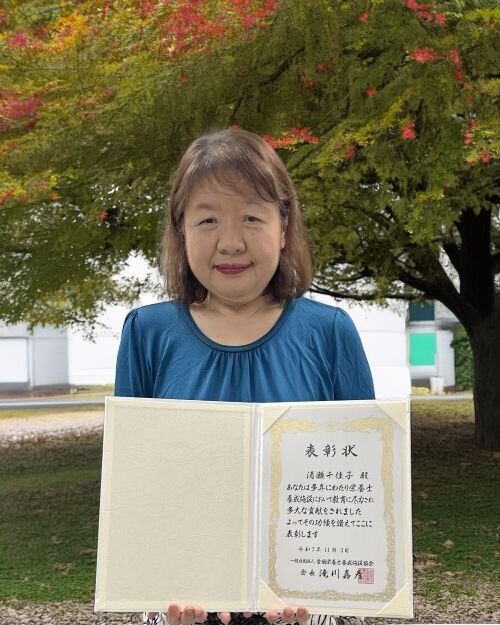 表彰状
清瀬千佳子 殿
あなたは多年にわたり栄養士
養成施設において教育に尽力され
多大な貢献をされました
よってその功績を讃えてここに
表彰します
令和7年11月3日
一般社団法人 全国栄養士養成施設協会
会長 滝川嘉彦